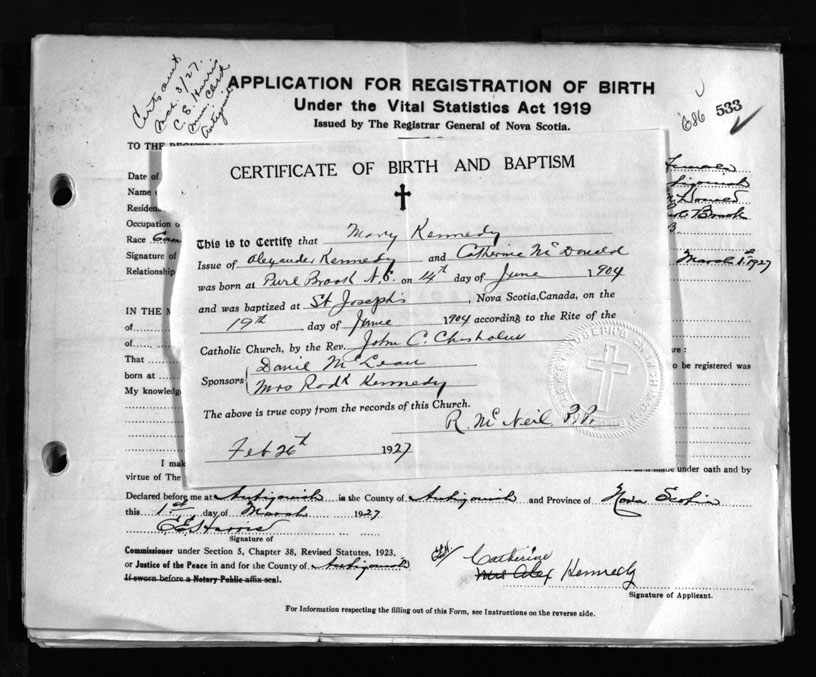 Certs sent
Mar. 3/27.
C. E. Harris
Mun. Clerk
Antigonish
APPLICATION FOR REGISTRATION OF BIRTH
Under the Vital Statistics Act 1919
Issued by The Registrar General of Nova Scotia.
686 533
TO THE
Date of Female
Name
Residen
Occupation o
Race
Signature of March 1st 1927
Relationship
IN THE M
of
of
That
born at to be registered was
My knowledg
CERTIFICATE OF BIRTH AND BAPTISM
This is to Certify that Mary Kennedy
Issue of Alexander Kennedy and Catherine McDonald
was born at Purl Brook N.S. on 14th day of June 1904
and was baptized at St Joseph's, Nova Scotia, Canada, on the
19th day of June 1904 according to the Rite of the
Catholic Church, by the Rev. John C. Chisholm
Sponsors Daniel McLean
Mrs Rodk Kennedy
The above is true copy from the records of this Church.
R. McNeil P.P.
Feb 26th 1927
I mak made under oath and by
virtue of The
Declared before me at Antigonish in the County of Antigonish and Province of Nova Scotia
this 1st day of March 1927
C E Harris
Signature of
Commissioner under Section 3, Chapter 38, Revised Statutes, 1923.
or Justice of the Peace in and for the County of Antigonish
If sworn before a Notary Public affix seal.
Catherine
Mrs Alex Kennedy
Signature of Applicant.
For Information respecting the filling out of this Form, see Instructions on the reverse side.